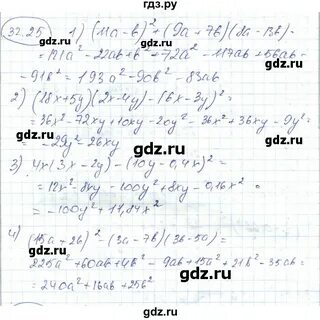 гдз.ру
32.25 1) (11a-b)² + (9a+7b)(8a-13b)=
=121a²-22ab+b²+72a²-117ab+56ab-
-91b²=193a²-90b²-83ab
2) (18x+5y)(2x-4y)-(6x-3y)²=
=36x²-72xy+10xy-20y²-36x²+36xy-9y²=
=-29y²-26xy
3) 4x(3x-2y)-(10y-0,4x)²=
=12x²-8xy-100y²+8xy-0,16x²=
=-100y²+11,84x²
4) (15a+2b)²-(3a-7b)(3b-5a)=
=225a²+60ab+4b²-9ab+15a²+21b²-35ab=
=240a²+16ab+25b²
гдз.ру